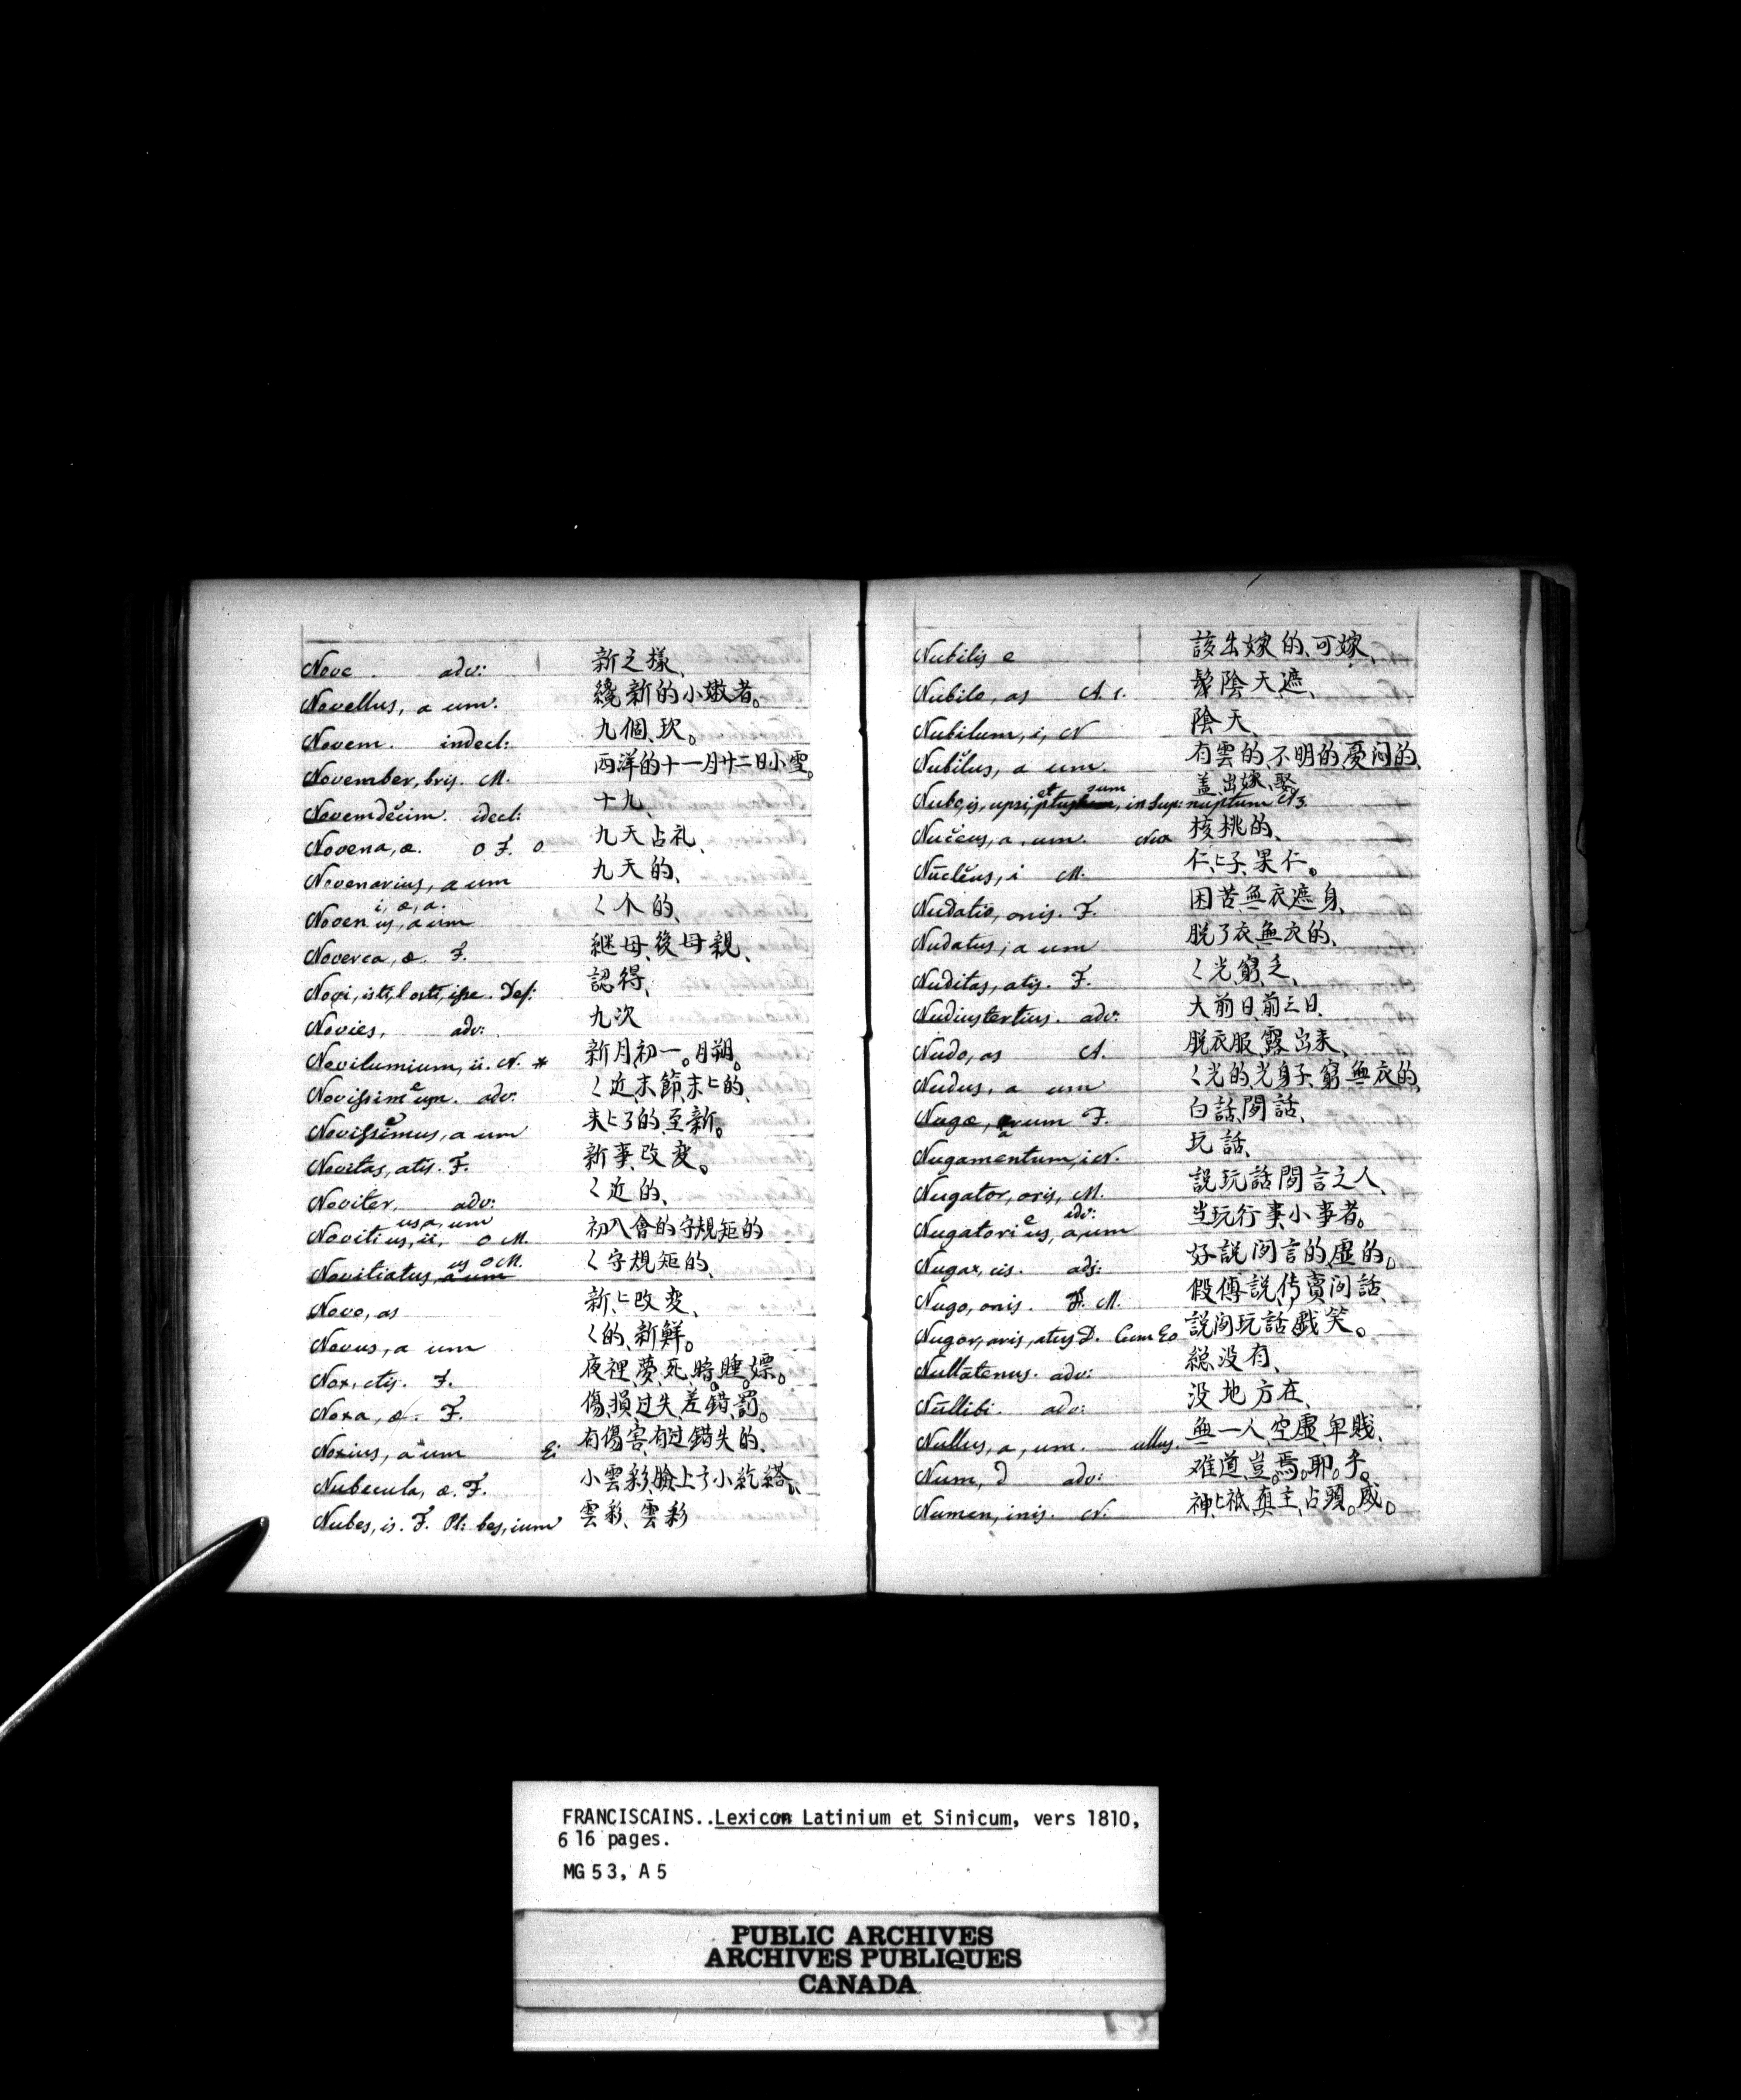 Nove . adv: 新之樣、
Novellus, a um. 纔新的小嫩者。
Novem . indecl: 九個、玖。
November, bris. M. 西洋的十一月廿二日小雪。
Novemdĕcim. idecl: 十九、
Novena, æ. o F. o 九天占礼、
Novenarius, a um 九天的、
i, æ, a.
Noven us, a um 〱个的、
Noverca, æ. F. 継母、後母親、
Novi, isti, l osti, isse. Def: 認得、
Novies, adv: 九次
Novilumium, ii. N. * 新月、初一。月朔。
Novissim e um. adv: 〱近、末節、末〻的、
Novissimus, a um 末〻了的、至新。
Novitas, atis. F. 新事、改变。
Noviter, adv: 〱近的、
us a, um
Noviti us, ii, o M. 初入會的守規矩的
us o M.
Novitiatus, a um 〱守規矩的、
Novo, as 新〻改变、
Novus, a um 〱的、新鮮。
Nox, ctis. F. 夜裡、夢、死、暗。睡。嫖。
Noxa, æ. F. 傷、損、过失、差、錯、罰。
Noxius, a um Ei 有傷害、有过錯失的、
Nubecula, æ. F. 小雲彩、臉上ㄋ小紇繨。
Nubes, is. F. Pl: bes, ium 雲彩、雲彩
Nubilis e 該出嫁的、可嫁、
Nubilo, as A. 1. 陰天遮、
Nubilum, i, N 陰天、
Nubĭlus, a um. 有雲的、不明的、憂闷的、
et sum 盖、出嫁、娶。
Nubo, is, upsi, ptus, in Sup: nuptum N 3.
Nuceus, a, um. Nux 核桃的、
Nūclĕus, i M. 仁〻子、果仁。
Nudatio, onis. F. 困苦、無衣遮身、
Nudatus, a um 脱了衣、無衣的、
Nuditas, atis. F. 〱光、窮乏、
Nudiustertius. adv: 大前日、前三日、
Nudo, as A. 脱衣服、露出来、
Nudus, a um 〱光的、光身子、窮、無衣的、
Nugæ, arum F. 白話、閒話、
Nugamentum, i N. 玩話、
Nugator, oris, M. 説玩話閒言之人、
adv:
Nugatori e us, a, um 当玩行事、小事者。
Nugax, cis. adj: 好説闲言的、虛的。
Nugo, onis. M. 假傳説、传賣闲話、
Nugor, aris, atus D. Cum Eo 説闲玩話、戲笑。
Nullātenus. adv: 縂没有、
Nūllibi. adv: 没地方在、
Nullus, a, um. ullus. 無一人、空虛、卑賤、
Num, d adv: 难道、豈。焉。耶。乎。
Numen, inis. N: 神〻祇、真主、占頭。威。
FRANCISCAINS..Lexicon Latinium et Sinicum, vers 1810,
616 pages.
MG 53, A 5
PUBLIC ARCHIVES
ARCHIVES PUBLIQUES
CANADA